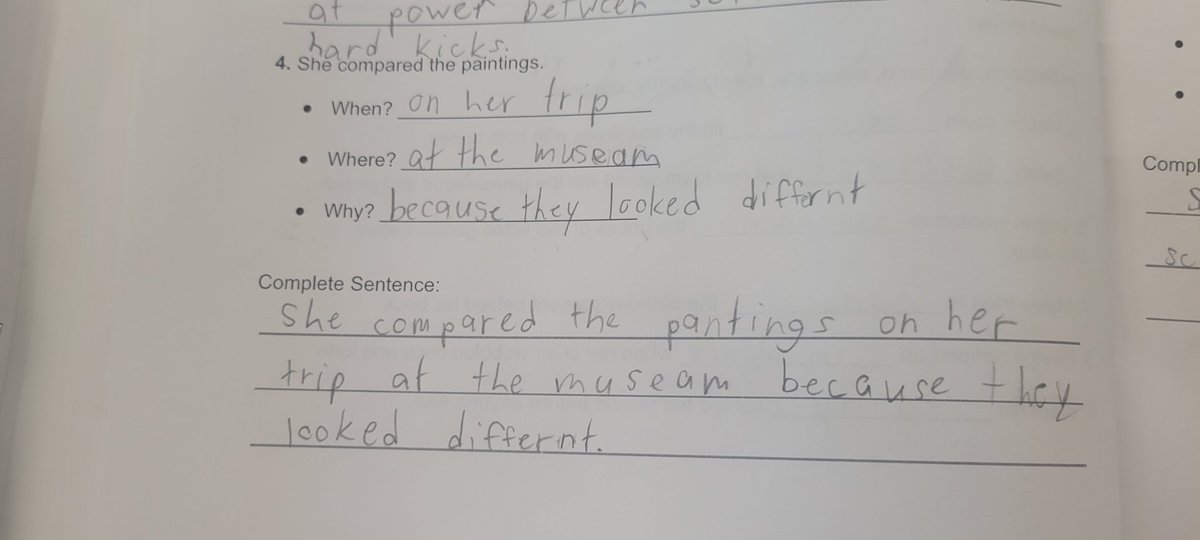 at power between
hard kicks.
4. She compared the paintings.
• When? on her trip
• Where? at the museam
• Why? because they looked differnt
Complete Sentence:
She compared the pantings on her
trip at the museam because they
looked differnt.
Compl
S
sc